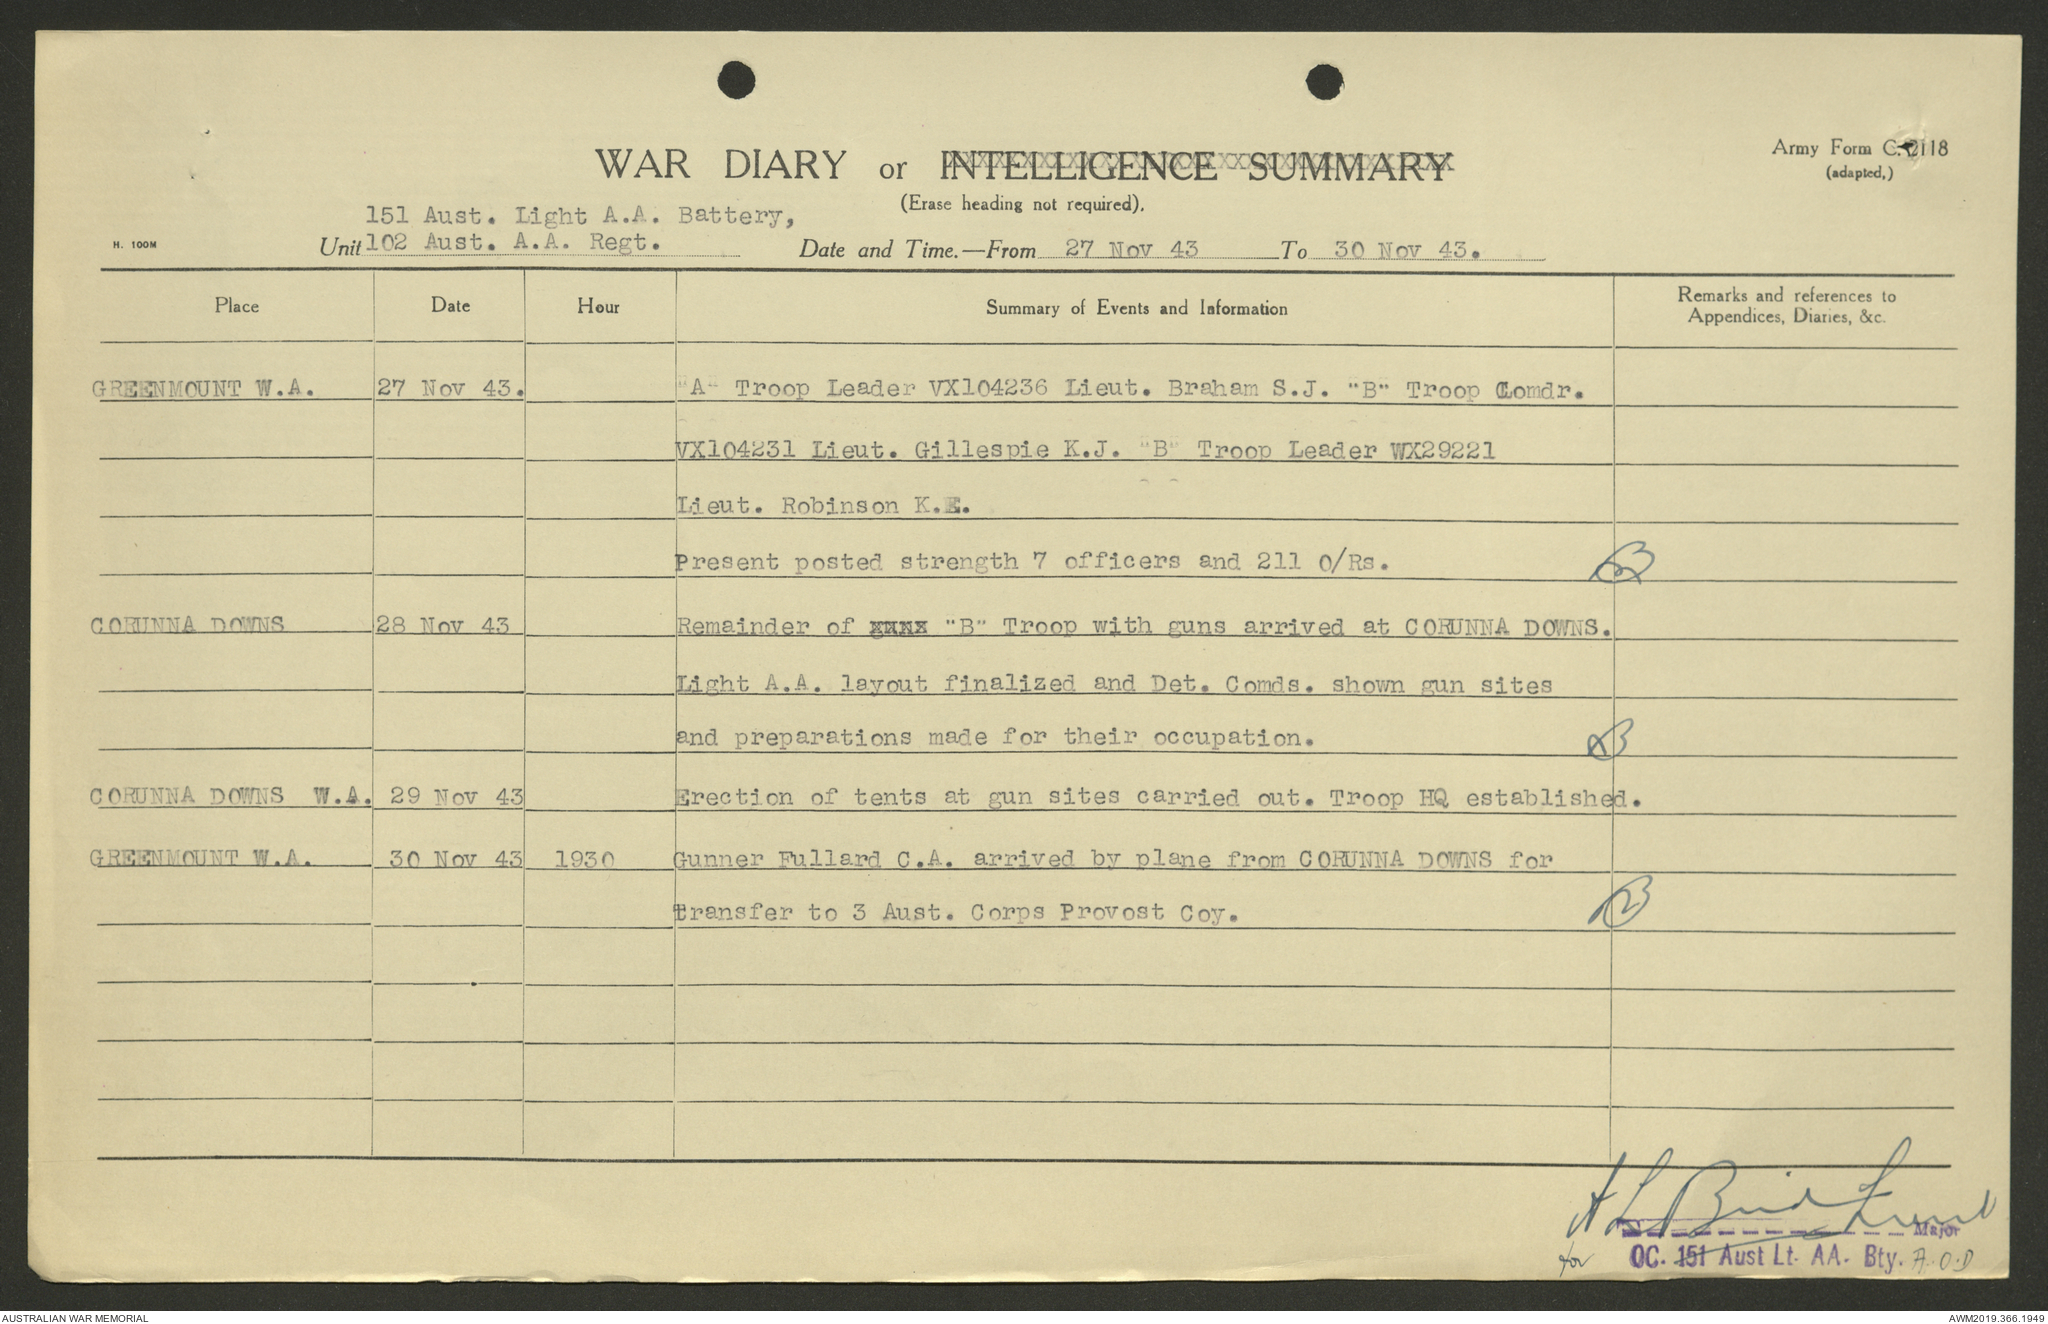 WAR DIARY or INTELLIGENCE SUMMARY
Army Form C. 2118
(adapted,)
(Erase heading not required).
151 Aust. Light A.A. Battery,
H. 100M
Unit 102 Aust. A.A. Regt.
Date and Time.—From 27 Nov 43 To 30 Nov 43.
Place Date Hour Summary of Events and Information Remarks and references to
Appendices, Diaries, &c.
GREENMOUNT W.A. 27 Nov 43. "A" Troop Leader VX104236 Lieut. Braham S.J. "B" Troop Comdr.
VX104231 Lieut. Gillespie K.J. "B" Troop Leader WX29221
Lieut. Robinson K.E.
Present posted strength 7 officers and 211 O/Rs.
CORUNNA DOWNS 28 Nov 43 Remainder of xxxx "B" Troop with guns arrived at CORUNNA DOWNS.
Light A.A. layout finalized and Det. Comds. shown gun sites
and preparations made for their occupation.
CORUNNA DOWNS W.A. 29 Nov 43 Erection of tents at gun sites carried out. Troop HQ established.
GREENMOUNT W.A. 30 Nov 43 1930 Gunner Fullard C.A. arrived by plane from CORUNNA DOWNS for
transfer to 3 Aust. Corps Provost Coy.
Major
for OC. 151 Aust Lt. AA. Bty. A.O.D
AUSTRALIAN WAR MEMORIAL
AWM2019.366.1949